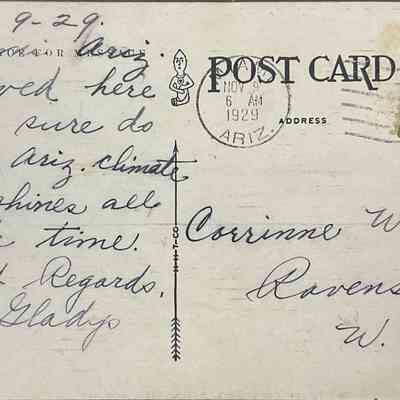 9-29.
Ariz.
FOR MESSAGE
here
sure do
Ariz. climate
shines all
time.
Regards,
Gladys
POST CARD
ADDRESS
NOV 9
6 AM
1929
ARIZ.
Corrinne W
Ravens
W.